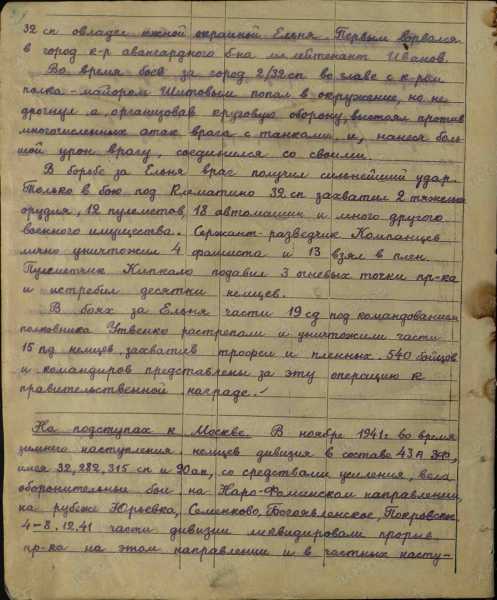 32 сп овладел южной окраиной Ельня. Первым ворвался
в город к-р авангардного б-на мл. лейтенант Иванов.
Во время боев за город 2/32 сп во главе с к-ром
полка - майором Шитовым попал в окружение, но не
дрогнул, а, организовав круговую оборону, выстоял против
многочисленных атак врага с танками и, нанеся боль
шой урон врагу, соединился со своими.
В борьбе за Ельня враг получил сильнейший удар.
Только в бою под Клематино 32 сп захватил 2 тяжелых
орудия, 12 пулеметов, 18 автомашин и много другого
военного имущества. Сержант-разведчик Компанцев
лично уничтожил 4 фашиста и 13 взял в плен.
Пулеметчик Кипкало подавил 3 огневых точки пр-ка
и истребил десятки немцев.
В боях за Ельня части 19 сд под командованием
полковника Утвенко растрепали и уничтожили части
15 пд немцев, захватив трофеи и пленных. 540 бойцов
и командиров представлены за эту операцию к
правительственной награде.
На подступах к Москве. В ноябре 1941 г. во время
зимнего наступления немцев дивизия в составе 43 А Зф,
имея 32, 282, 315 сп и 90 ап, со средствами усиления, вела
оборонительные бои на Наро-Фоминском направлении,
на рубеже Юрьевка, Семенково, Богоявленское, Покровское.
4-8.12.41 части дивизии ликвидировали прорыв
пр-ка на этом направлении и в частных насту-